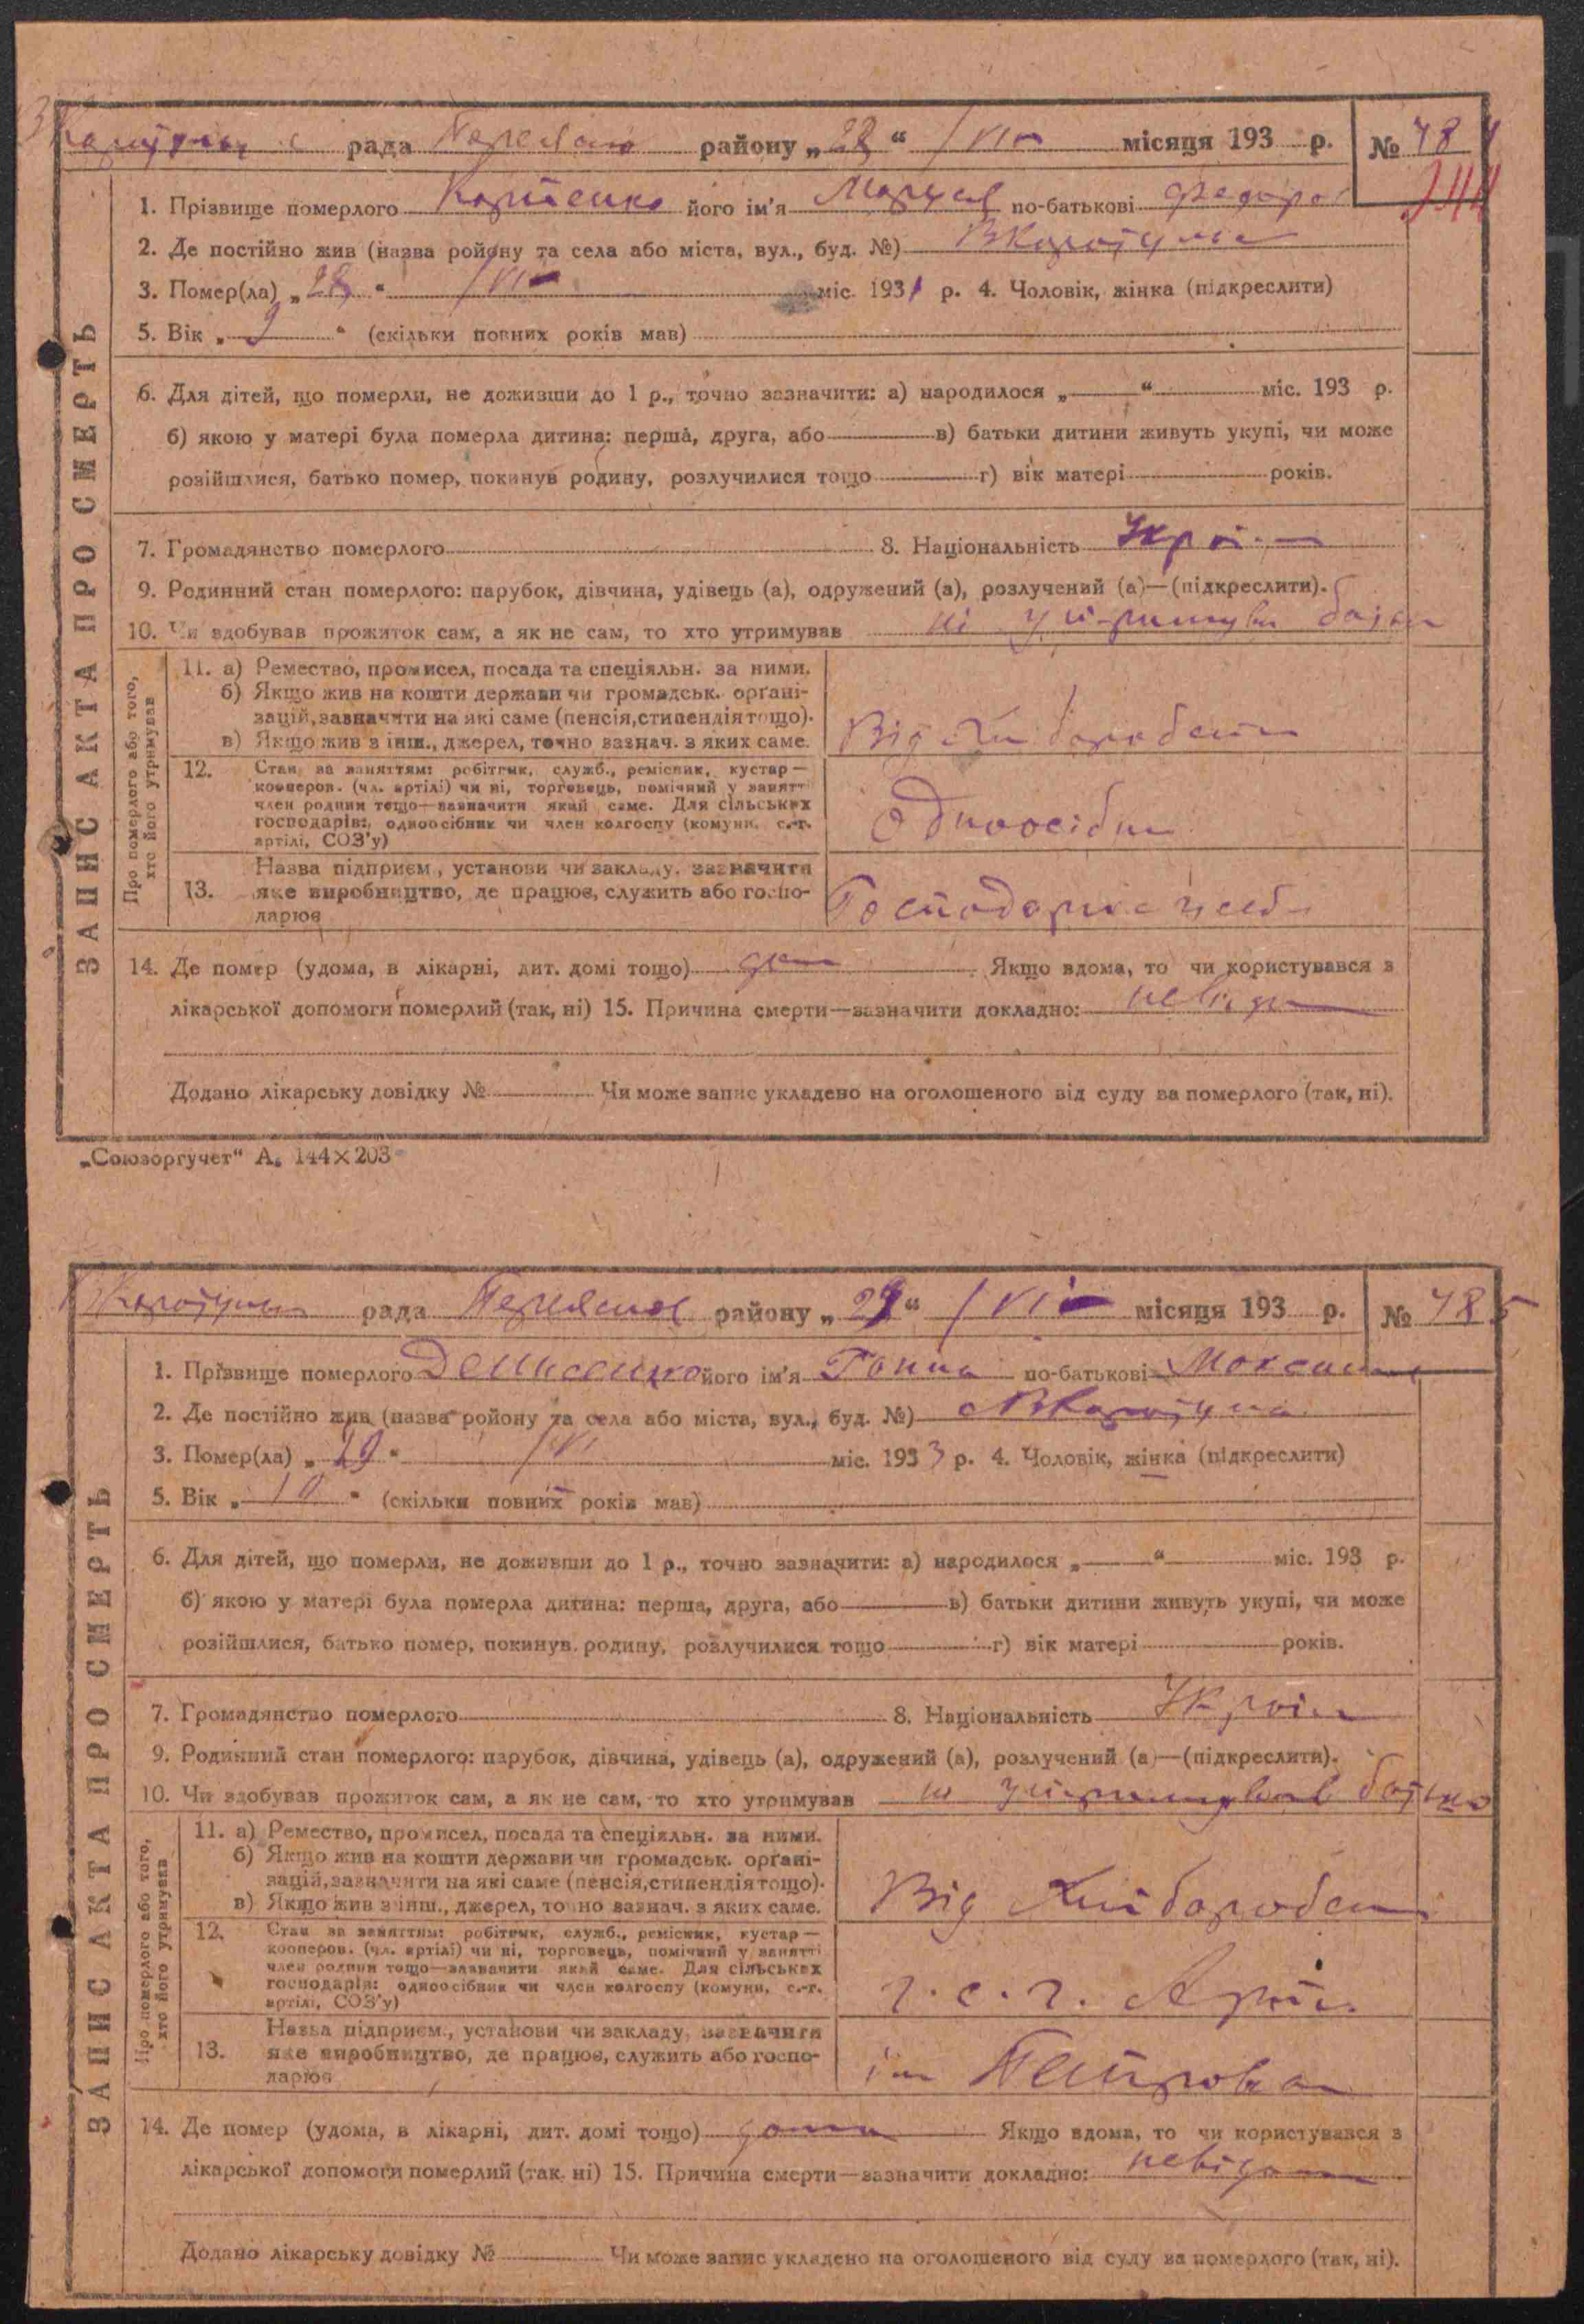 рада районну „28“ /VI місяця 193 р. № 784
244
1. Прізвище померлого його ім'я по-батькові Федоро
2. Де постійно жив (назва ройону та села або міста, вул., буд. №)
3. Помер(ла) „28“ /VI міс. 193 р. 4. Чоловік, жінка (підкреслити)
5. Вік „9“ (скільки повних років мав)
6. Для дітей, що померли, не доживши до 1 р., точно зазначити: а) народилося „ “ міс. 193 р.
б) якою у матері була померла дитина: перша, друга, або в) батьки дитини живуть укупі, чи може
розійшлися, батько помер, покинув родину, розлучилися тощо г) вік матері років.
7. Громадянство померлого 8. Національність Украї
9. Родинний стан померлого: парубок, дівчина, удівець (а), одружений (а), розлучений (а)—(підкреслити).
10. Чи здобував прожиток сам, а як не сам, то хто утримував ні
ЗАПИС АКТА ПРО СМЕРТЬ
Про померлого або того, хто його утримував
11. а) Ремество, промисел, посада та спеціяльн. за ними.
б) Якщо жив на кошти держави чи громадськ. орґані-
зацій, зазначити на які саме (пенсія, стипендія тощо).
в) Якщо жив з інш., джерел, точно зазнач. з яких саме.
Від
12. Стан за заняттям: робітник, служб., ремісник, кустар—
кооперов. (чл. артілі) чи ні, торговець, помічний у занятті
член родини тощо—зазначити який саме. Для сільських
господарів: одноосібник чи член колгоспу (комуни, с.-г.
артілі, СОЗ'у)
Одноосібн
13. Назва підприєм., установи чи закладу, зазначити
яке виробництво, де працює, служить або госпо-
дарює
14. Де помер (удома, в лікарні, дит. домі тощо) Якщо вдома, то чи користувався з
лікарської допомоги померлий (так, ні) 15. Причина смерти—зазначити докладно: невідом
Додано лікарську довідку № Чи може запис укладено на оголошеного від суду за померлого (так, ні).
„Союзоргучет“ А₆ 144×203
рада районну „29“ /VI місяця 193 р. № 785
1. Прізвище померлого Денисенко його ім'я Ганна по-батькові
2. Де постійно жив (назва ройону та села або міста, вул., буд. №)
3. Помер(ла) „29“ /VI міс. 1933 р. 4. Чоловік, жінка (підкреслити)
5. Вік „10“ (скільки повних років мав)
6. Для дітей, що померли, не доживши до 1 р., точно зазначити: а) народилося „ “ міс. 193 р.
б) якою у матері була померла дитина: перша, друга, або в) батьки дитини живуть укупі, чи може
розійшлися, батько помер, покинув родину, розлучилися тощо г) вік матері років.
7. Громадянство померлого 8. Національність Украї
9. Родинний стан померлого: парубок, дівчина, удівець (а), одружений (а), розлучений (а)—(підкреслити).
10. Чи здобував прожиток сам, а як не сам, то хто утримував ні утримував батько
ЗАПИС АКТА ПРО СМЕРТЬ
Про померлого або того, хто його утримував
11. а) Ремество, промисел, посада та спеціяльн. за ними.
б) Якщо жив на кошти держави чи громадськ. орґані-
зацій, зазначити на які саме (пенсія, стипендія тощо).
в) Якщо жив з інш., джерел, точно зазнач. з яких саме.
Від
12. Стан за заняттям: робітник, служб., ремісник, кустар—
кооперов. (чл. артілі) чи ні, торговець, помічний у занятті
член родини тощо—зазначити який саме. Для сільських
господарів: одноосібник чи член колгоспу (комуни, с.-г.
артілі, СОЗ'у)
13. Назва підприєм., установи чи закладу, зазначити
яке виробництво, де працює, служить або госпо-
дарює
ім Петровс
14. Де помер (удома, в лікарні, дит. домі тощо) дома Якщо вдома, то чи користувався з
лікарської допомоги померлий (так, ні) 15. Причина смерти—зазначити докладно: невідом
Додано лікарську довідку № Чи може запис укладено на оголошеного від суду за померлого (так, ні).